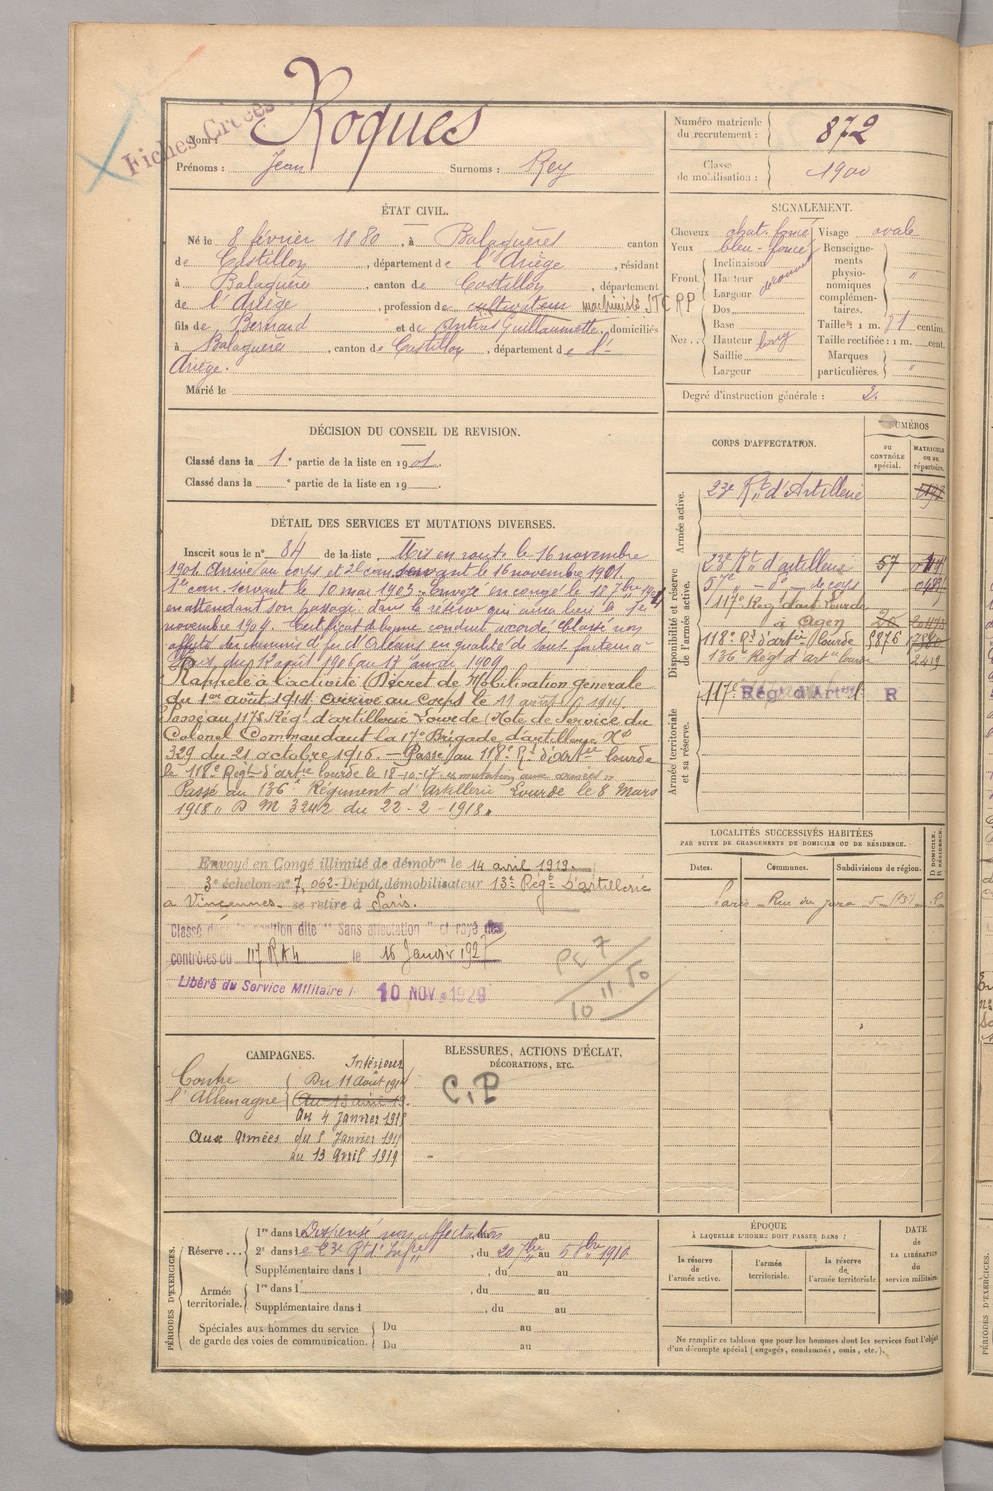 Fiches Créées
Nom : Roques
Prénoms : Jean Surnoms : Rey
Numéro matricule du recrutement : 872
Classe de mobilisation : 1900
ÉTAT CIVIL.
Né le 8 février 1880, à Balaguères canton
de Castillon, département de l'Ariège, résidant
à Balaguère, canton de Castillon, département
de l'Ariège, profession de cultivateur machiniste STCRP
fils de Bernard et de Guillaumette, domiciliés
à Balaguères, canton de Castillon, département de l'
Ariège.
Marié le
SIGNALEMENT.
Cheveux chat. foncé Visage ovale
Yeux bleu-foncé
Front. Inclinaison
Hauteur
Largeur
Nez... Dos
Base
Hauteur
Saillie
Largeur
Renseignements physionomiques complémentaires. "
Taille : 1 m. 71 centim.
Taille rectifiée : 1 m. cent.
Marques particulières. "
Degré d'instruction générale : 2.
DÉCISION DU CONSEIL DE REVISION.
Classé dans la 1e partie de la liste en 1901.
Classé dans la e partie de la liste en 19
DÉTAIL DES SERVICES ET MUTATIONS DIVERSES.
Inscrit sous le n° 84 de la liste Mis en route le 16 novembre
1901. Arrivé au corps et 2e can. servant le 16 novembre 1901.
1er can. servant le 10 mai 1903. Envoyé en congé le 18 7bre 1904
en attendant son passage dans la réserve qui aura lieu le 1er
novembre 1904. Certificat de bonne conduite accordé. Classé non
affecté des chemins de fer d'Orléans en qualité de
du 1er août 1906 au 17 1909
Rappelé à l'activité (Décret de Mobilisation générale
du 1er août 1914 arrivé au Corps le 11 août 1914.
Passé au 117e Rég. d'artillerie Lourde (Note de Service du
Colonel Commandant la 17e Brigade d'artillerie No
329 du 21 octobre 1915. Passé au 118e Rt d'artie lourde
le 118e Régt d'artie lourde le 18-10-17
Passé au 136e Régiment d'Artillerie Lourde le 8 Mars
1918 " D M 3242 du 22-2-1918 "
Envoyé en Congé illimité de démobon le 14 avril 1919.
3e échelon n° 7,062 Dépôt démobilisateur 13e Régt d'artillerie
à Vincennes se retire à Paris.
Classé dans la position dite "Sans affectation" et rayé des
contrôles du 117 RAL le 16 Janvier 1927
Libéré du Service Militaire le 10 NOV. 1929
10 11 50
CORPS D'AFFECTATION.
NUMÉROS
au CONTRÔLE spécial.
MATRICULE ou au répertoire.
Armée active.
23e Rt d'Artillerie
Disponibilité et réserve de l'armée active.
23e Rt d'artillerie 57
57e - d° - de corps
117e Rég d'art Lourde
à Agen
118e Rt d'artie lourde 5876
136e Régt d'arte lourde 2419
Armée territoriale et sa réserve.
117e Régt d'Artie l R
LOCALITÉS SUCCESSIVES HABITÉES
PAR SUITE DE CHANGEMENTS DE DOMICILE OU DE RÉSIDENCE.
Dates. Communes. Subdivisions de région. D DOMICILE. R RÉSIDENCE.
Paris Rue du Jura 5 (13e) R
CAMPAGNES.
Intérieur
Contre l'Allemagne
Du 11 Août 1914
Au 13 avril 19
au 4 Janvier 1915
Aux armées du 5 Janvier 1915
au 13 avril 1919
BLESSURES, ACTIONS D'ÉCLAT, DÉCORATIONS, ETC.
C.P
PÉRIODES D'EXERCICES.
Réserve... 1re dans le Dispensé non affectation au
2e dans le 23e Rt d'Infie, du 20 7bre au 5 8bre 1910
Supplémentaire dans l , du au
Armée territoriale. 1re dans l , du au
Supplémentaire dans l , du au
Spéciales aux hommes du service de garde des voies de communication. Du au
Du au
ÉPOQUE
À LAQUELLE L'HOMME DOIT PASSER DANS :
la réserve de l'armée active.
l'armée territoriale.
la réserve de l'armée territoriale
DATE de LA LIBÉRATION du service militaire.
Ne remplir ce tableau que pour les hommes dont les services font l'objet
d'un décompte spécial (engagés, condamnés, omis, etc.).
PÉRIODES D'EXERCICES.